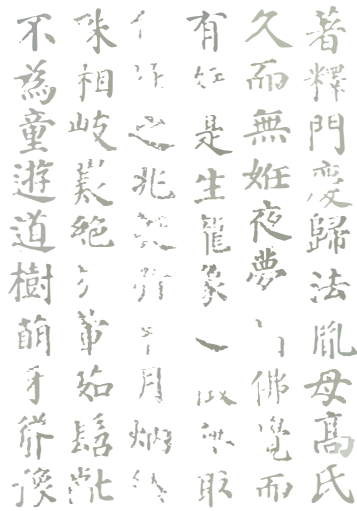 著釋門慶歸法胤母高氏
久而無妊夜夢佛覺而
有是生龍象取
之兆月炳
殊相岐嶷絕葷茹髫齔
不為童遊道樹萌牙聳豫